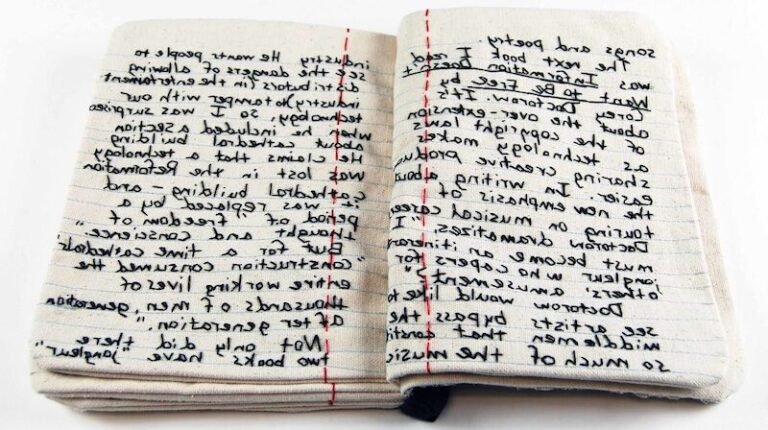 songs and poetry.
The next book I read
was Information Doesn't
Want to Be Free by
Corey Doctorow. It's
about the over-extension
of the copyright laws
as technology makers
sharing creative produc
easier. In writing about
the new emphasis of
touring on musical career
Doctorow dramatizes, "I
must become an itinerant
jongleur who capers for
others' amusement."
Doctorow would like to
see artists bypass the
middlemen that constit
so much of the music
industry. He wants people to
see the dangers of allowing
distributors (in the entertainment
industry) to tamper with our
technology, so I was surprised
when he included a section
about cathedral building.
He claims that a technology
was lost in the Reformation
- cathedral building - and
it was replaced by a
period of "freedom of
thought and conscience."
But for a time cathedral
"construction consumed the
entire working lives of
thousands of men, generation
after generation."
Not only did there
two books have "jongleur"